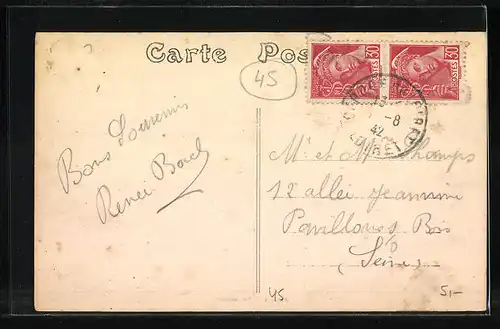 Carte Pos
45
30 POSTES 30 POSTES
-8
42
LOIRET
Bons Souvenirs
Renée
Mr et Mme Champs
12 allei Jeannine
Pavillons s Bois
(Seine)
45
5,-